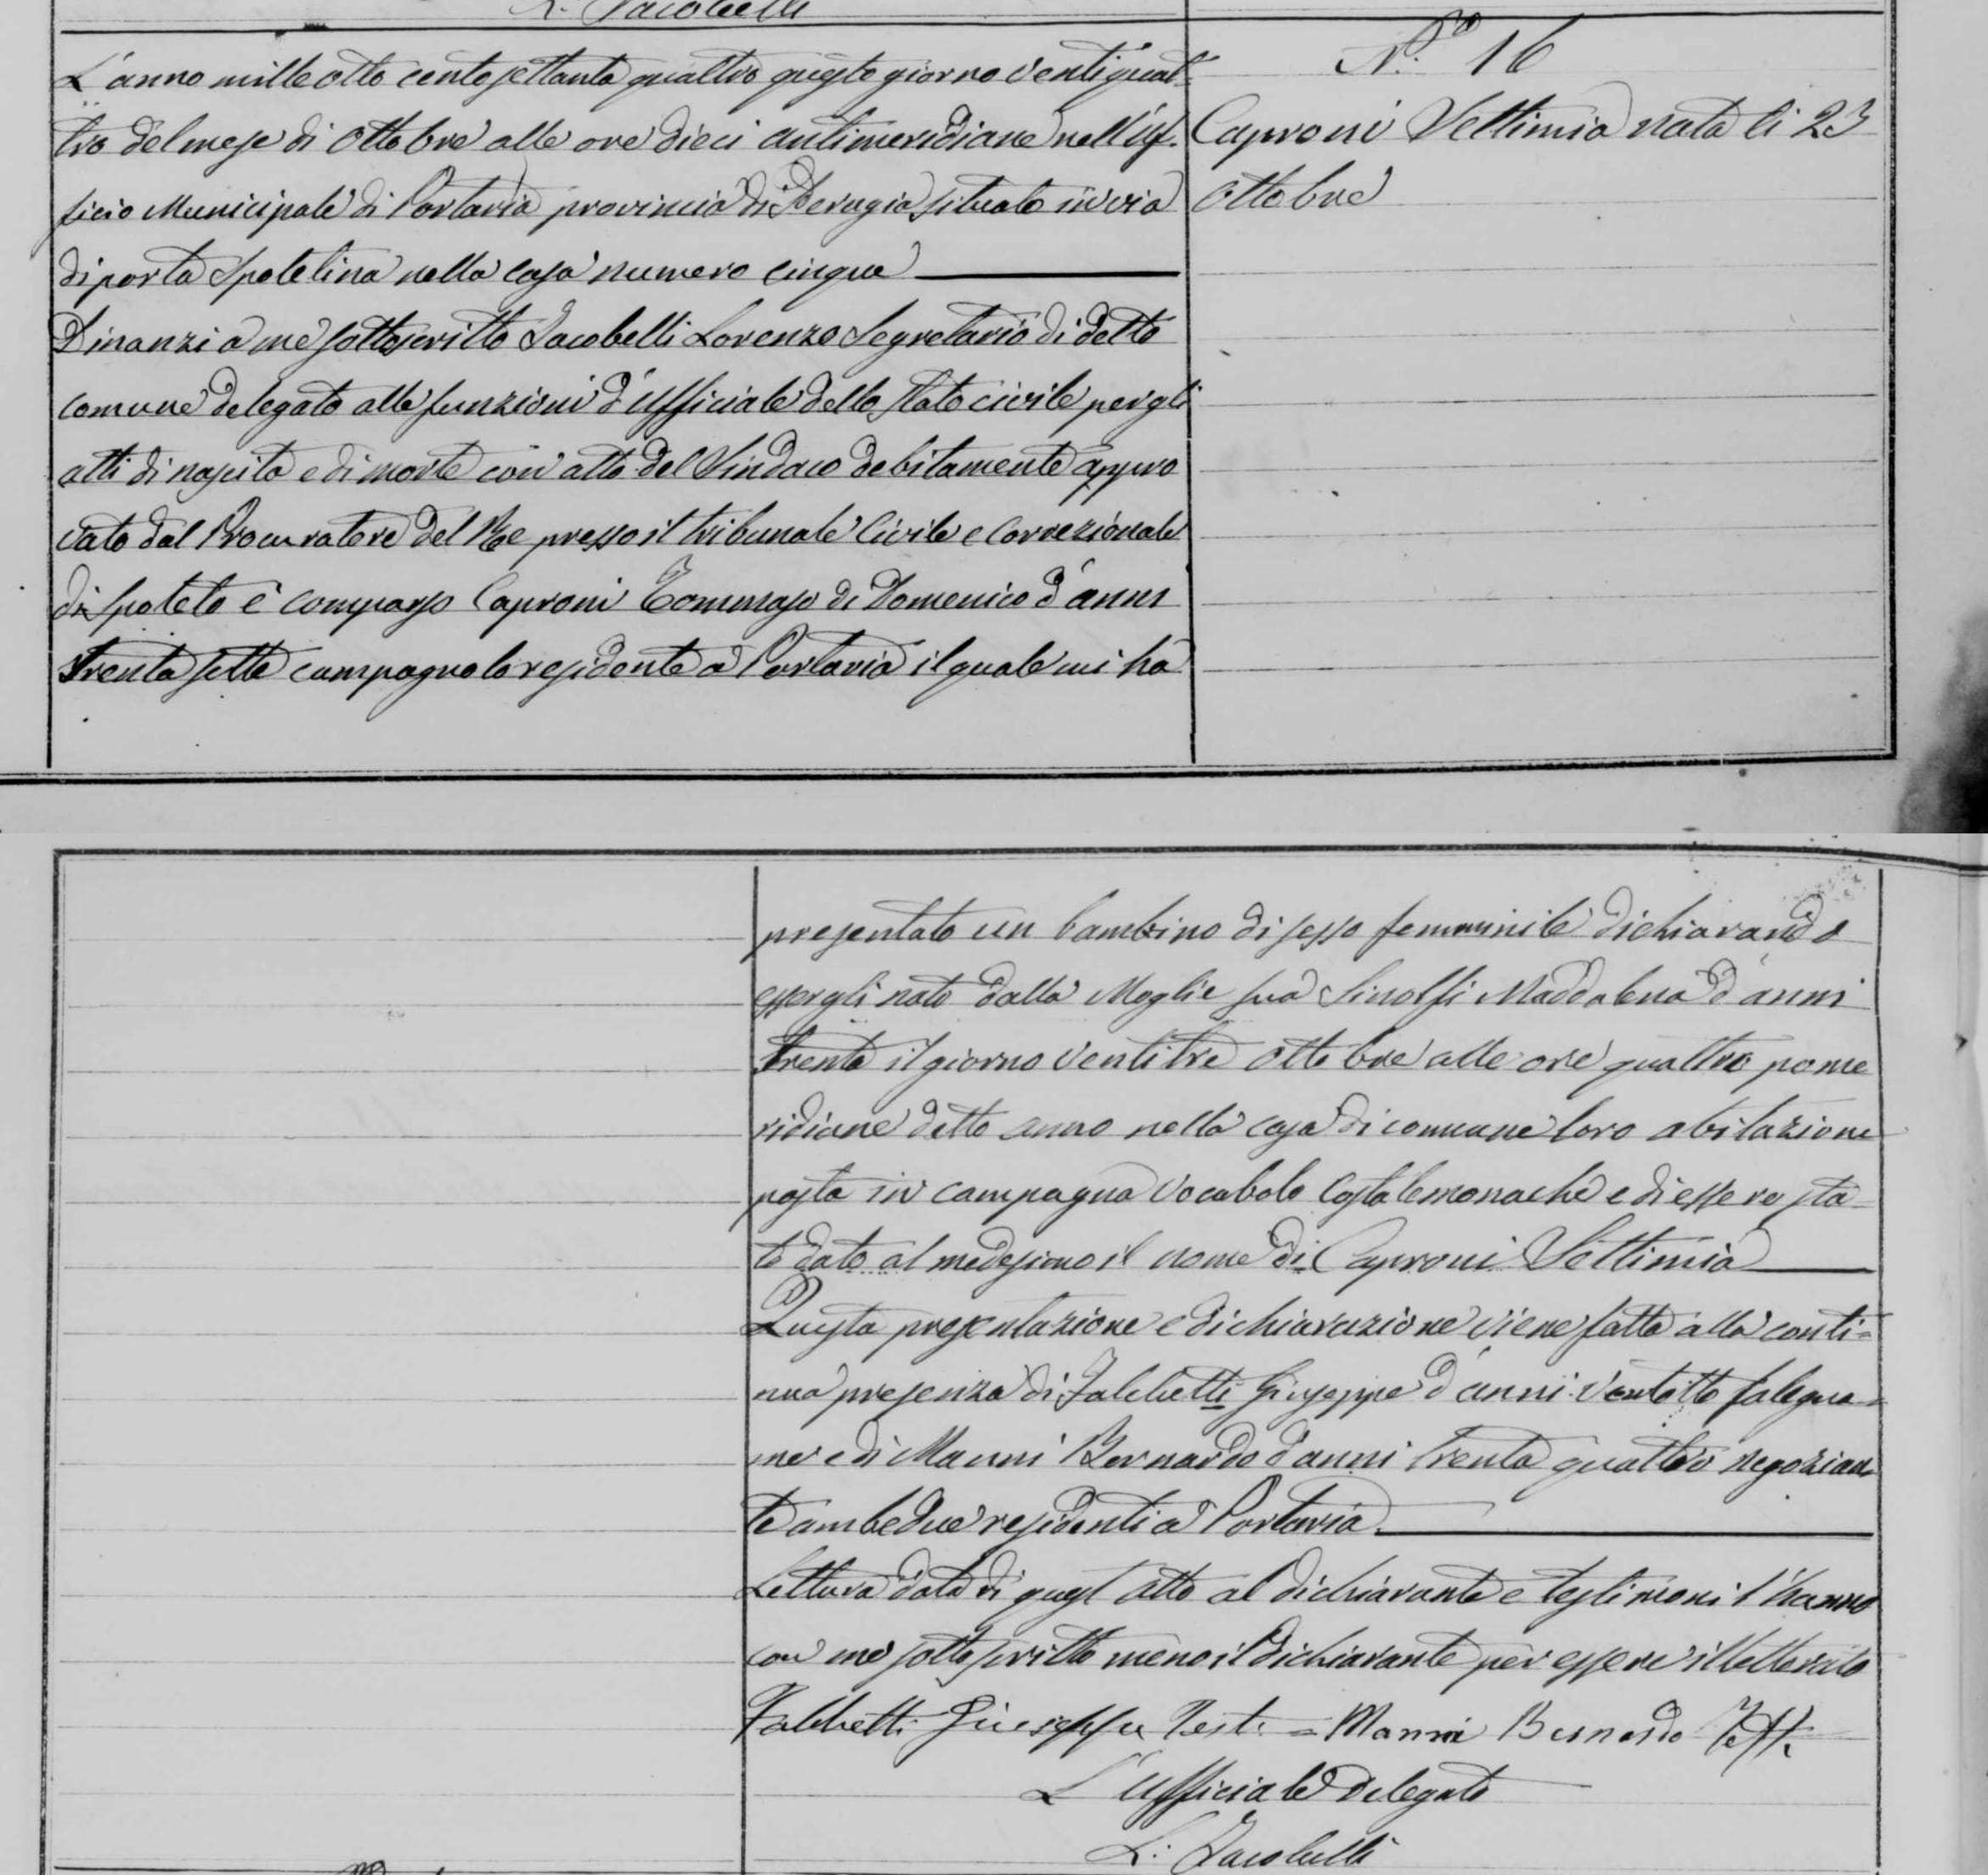 L. Jacobelli
L'anno mille otto cento settanta quattro questo giorno ventiquat-
tro del mese di Ottobre alle ore dieci antimeridiane nell'uf-
ficio Municipale di Portaria provincia di Perugia situato in via
di porta Spoletina nella casa numero cinque
Dinanzi a me sottoscritto Jacobelli Lorenzo Segretario di detto
comune delegato alle funzioni d'Ufficiale dello stato civile per gli
atti di nascita e di morte con atto del Sindaco debitamente appro
vato dal Procuratore del Re presso il tribunale Civile e Correzionale
di Spoleto è comparso Caproni Tommaso di Domenico d'anni
trenta sette campagnolo residente a Portaria il quale mi ha
N.o 16
Caproni Settimia nata li 23
Ottobre
presentato un bambino di sesso femminile dichiarando
essergli nato dalla Moglie sua Sinolfi Maddalena d'anni
trenta il giorno ventitre Ottobre alle ore quattro pome
ridiane detto anno nella casa di comune loro abitazione
posta in campagna vocabolo Costa le monache e di essere sta-
to dato al medesimo il nome di Caproni Settimia
Questa presentazione e dichiarazione viene fatta alla conti=
nua presenza di Falchetti Giuseppe d'anni ventotto falegna=
me e di Manni Bernardo d'anni trenta quattro negozian
te ambedue residenti a Portaria.
Lettura data di quest'atto al dichiarante e testimoni l'hanno
con me sottoscritto meno il dichiarante per essere illetterato
Falchetti Giuseppe Test. = Manni Bernardo Test.
L'ufficiale Delegato
L. Jacobelli